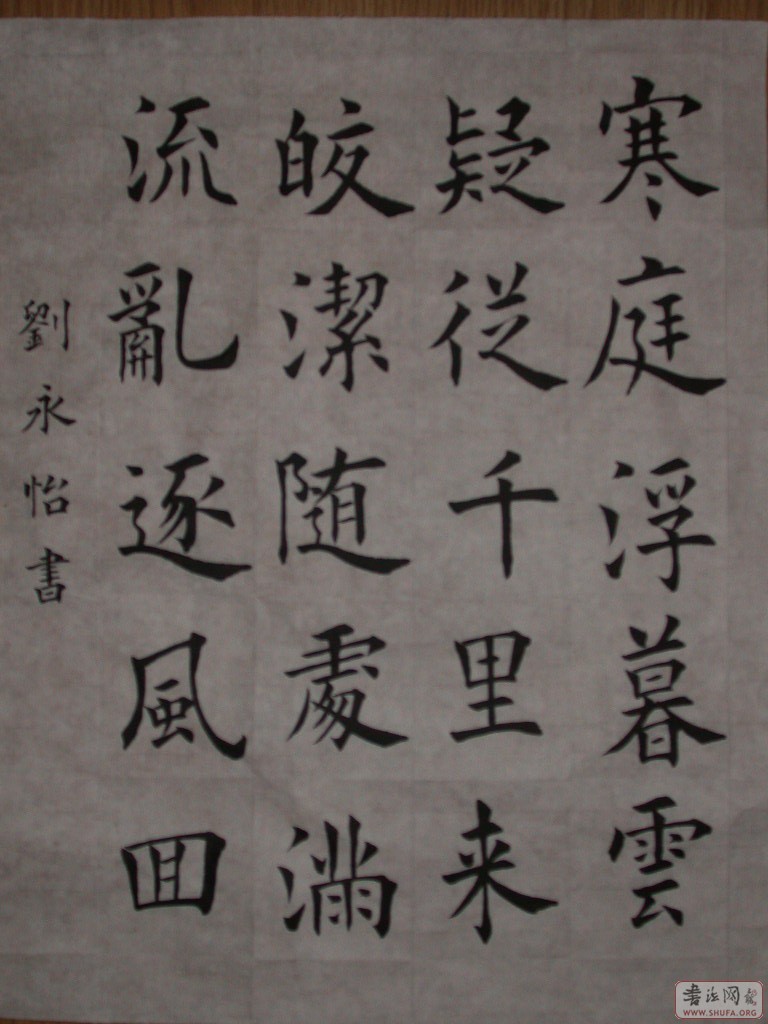 寒庭浮暮雲
疑從千里来
皎潔随處滿
流亂逐風囬
劉永怡書
書法网
WWW.SHUFA.ORG